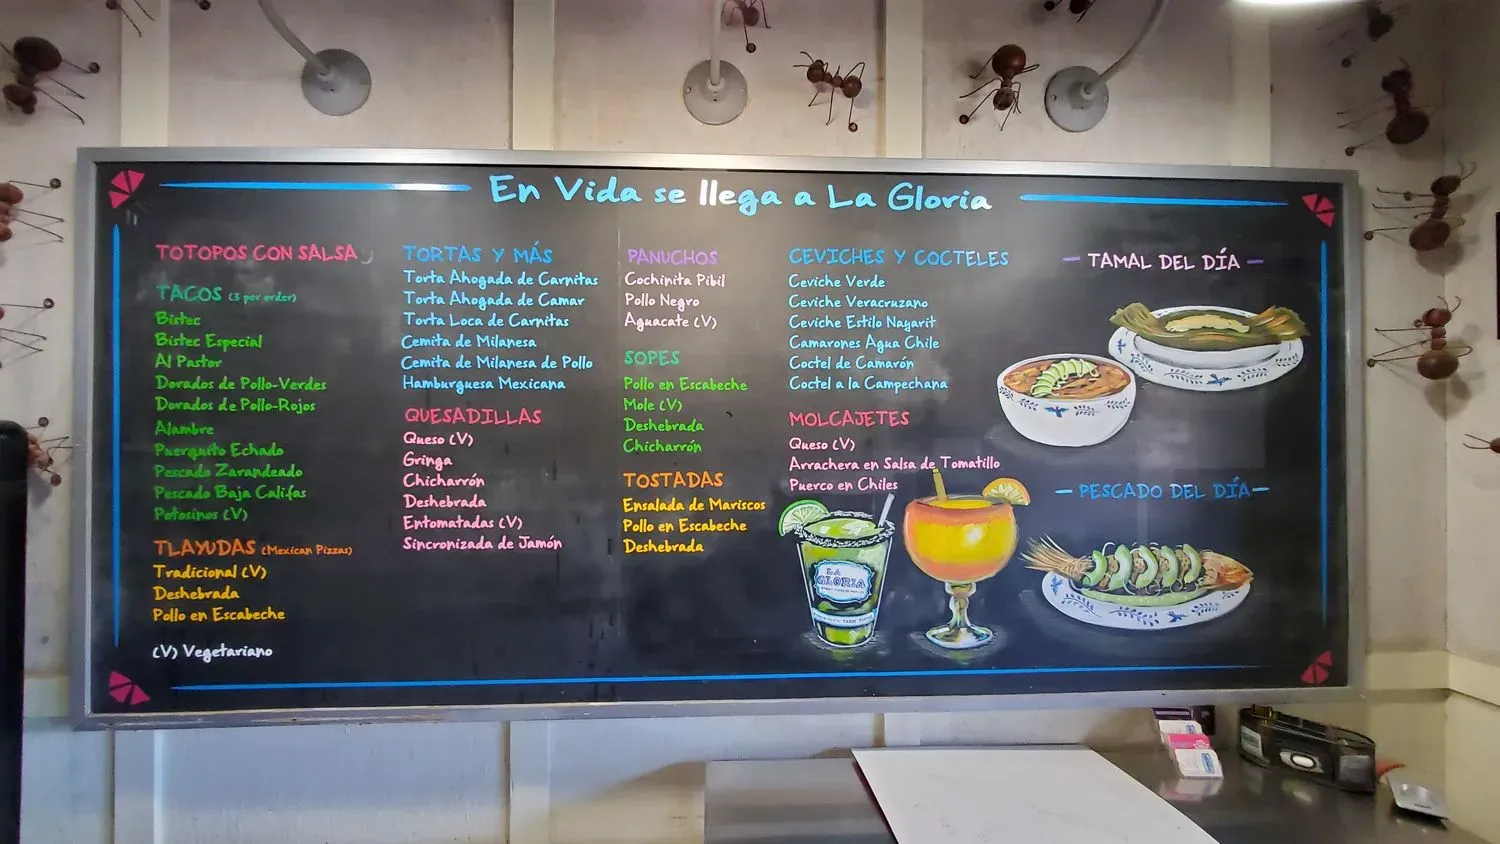 En Vida se llega a La Gloria
TOTOPOS CON SALSA
TACOS (3 per order)
Bistec
Bistec Especial
Al Pastor
Dorados de Pollo-Verdes
Dorados de Pollo-Rojos
Alambre
Puerquito Echado
Pescado Zarandeado
Pescado Baja Califas
Potosinos (V)
TLAYUDAS (Mexican Pizzas)
Tradicional (V)
Deshebrada
Pollo en Escabeche
(V) Vegetariano
TORTAS Y MÁS
Torta Ahogada de Carnitas
Torta Ahogada de Camar
Torta Loca de Carnitas
Cemita de Milanesa
Cemita de Milanesa de Pollo
Hamburguesa Mexicana
QUESADILLAS
Queso (V)
Gringa
Chicharrón
Deshebrada
Entomatadas (V)
Sincronizada de Jamón
PANUCHOS
Cochinita Pibil
Pollo Negro
Aguacate (V)
SOPES
Pollo en Escabeche
Mole (V)
Deshebrada
Chicharrón
TOSTADAS
Ensalada de Mariscos
Pollo en Escabeche
Deshebrada
CEVICHES Y COCTELES
Ceviche Verde
Ceviche Veracruzano
Ceviche Estilo Nayarit
Camarones Agua Chile
Coctel de Camarón
Coctel a la Campechana
MOLCAJETES
Queso (V)
Arrachera en Salsa de Tomatillo
Puerco en Chiles
LA
GLORIA
- TAMAL DEL DÍA -
- PESCADO DEL DÍA -